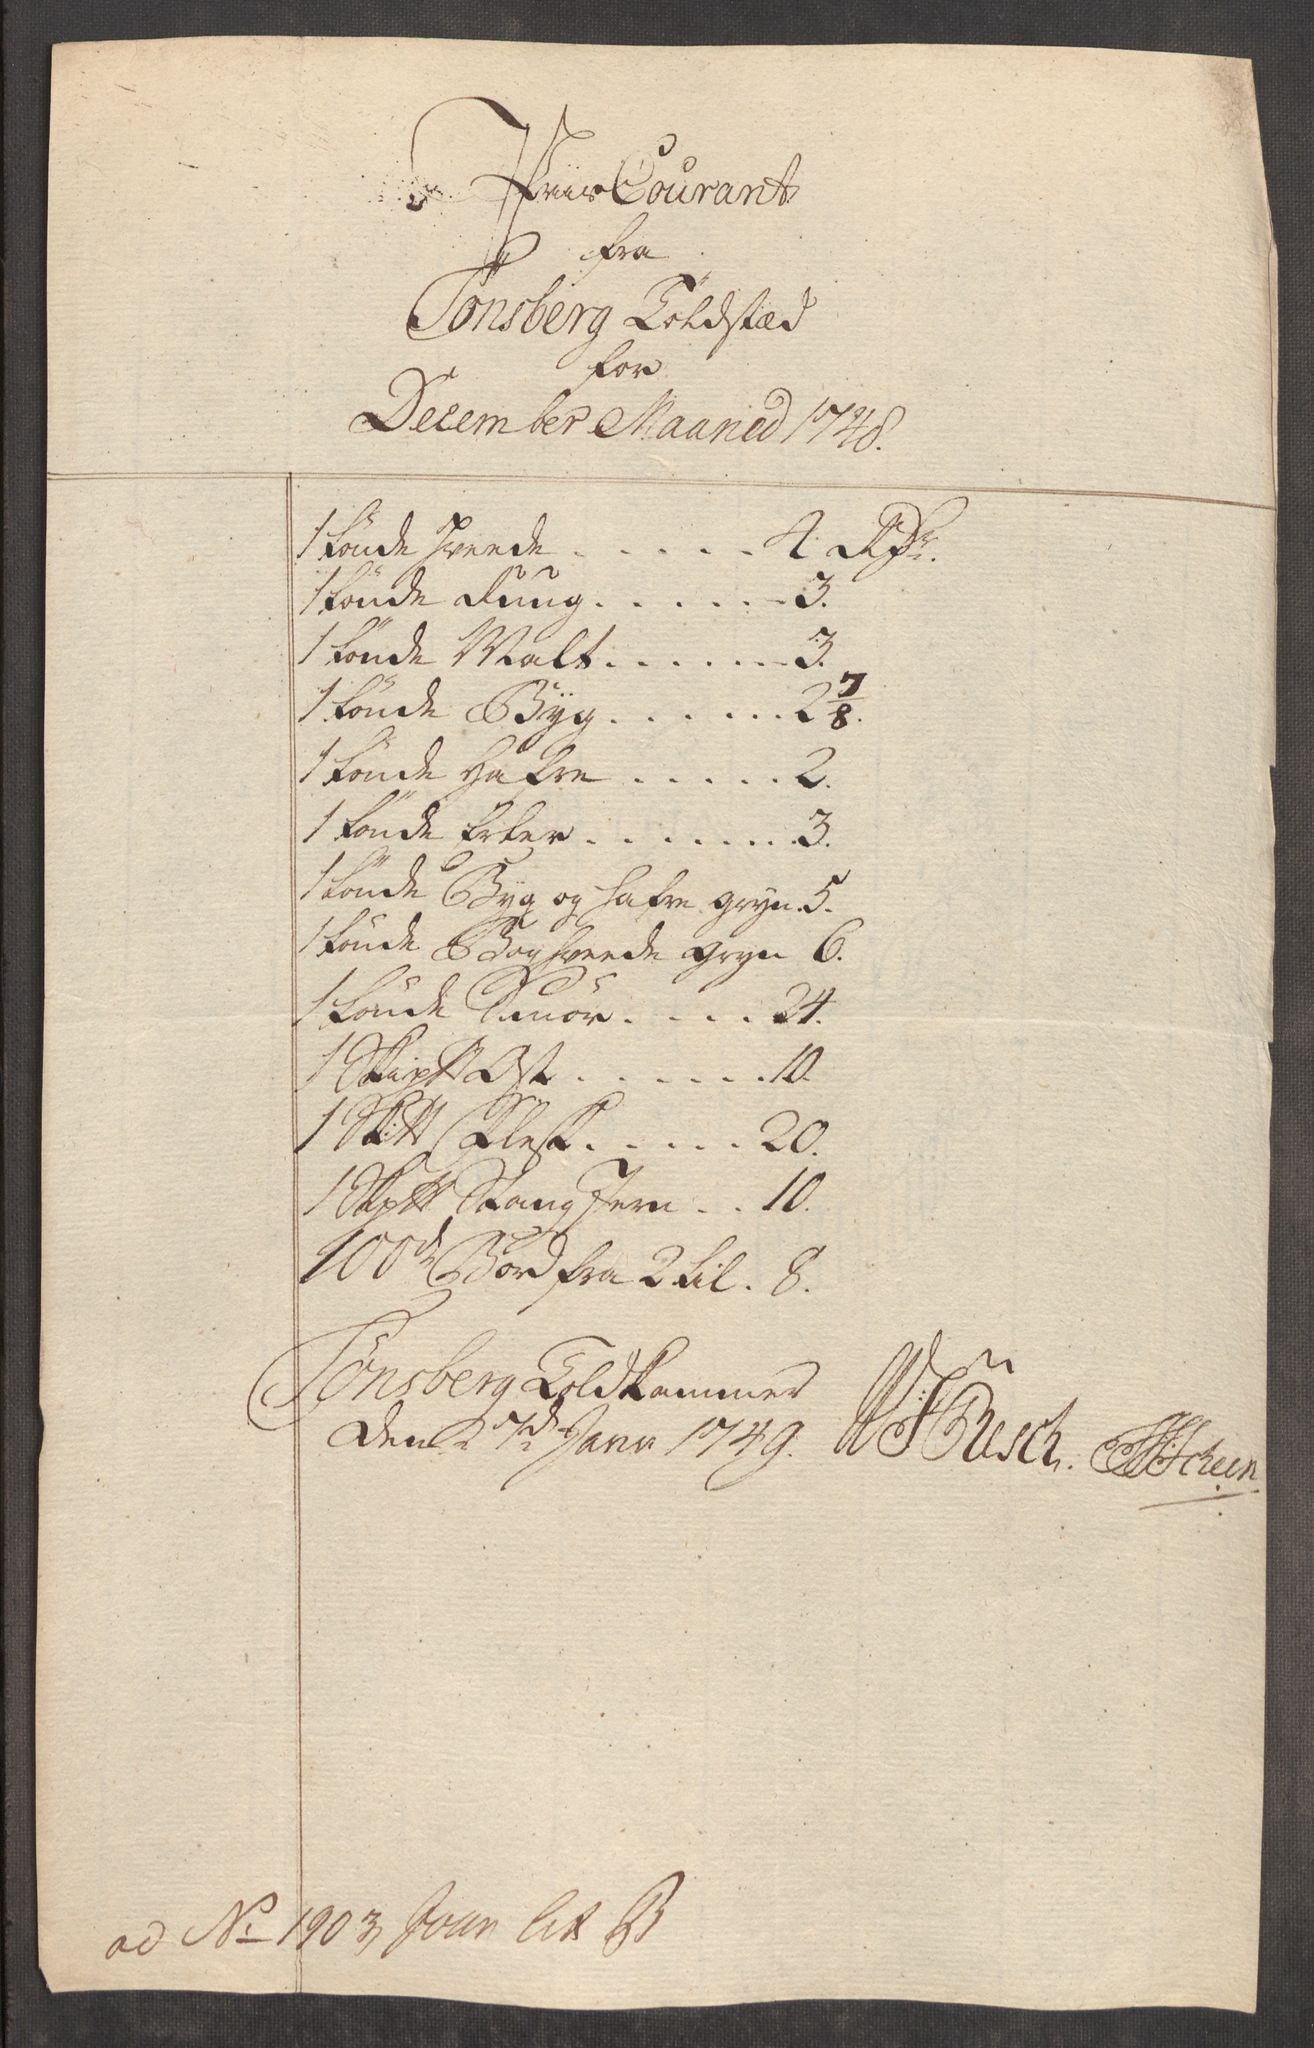 Priis Courant
fra
Tönsberg Toldstæd
for
December Maaned 1748.
1 tönde Hvede . . . . . 4 Rdr.
1 tönde Rüüg . . . . . 3.
1 tönde Malt . . . . . 3.
1 tönde Byg . . . . . 2 7/8.
1 tönde Hafre . . . . . 2.
1 tönde Erter . . . . . 3.
1 tönde Byg og Hafre gryn. 5.
1 tönde Boghvede gryn 6.
1 tönde Smör . . . . 24.
1 Skip℔ Ost . . . . . 10.
1 Sk℔ Flesk . . . . . 20.
1 Skp℔ Stang Jern . . 10.
100de Bord fra 2 til . 8.
Tönsberg Toldkammer
den 7de Janr 1749. Resch.
ad No 1903 Joun Lit B